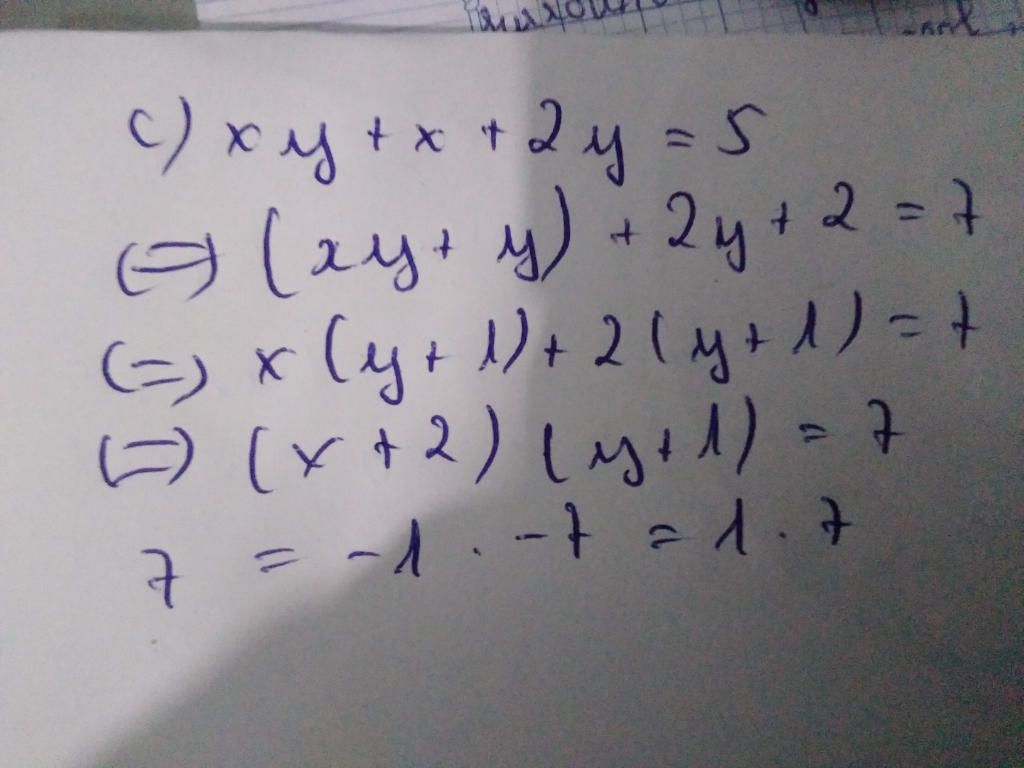 c) xy + x + 2y = 5
(=) (xy + y) + 2y + 2 = 7
(=) x (y + 1) + 2 (y + 1) = 7
(=) (x + 2) (y + 1) = 7
7 = -1 . -7 = 1 . 7